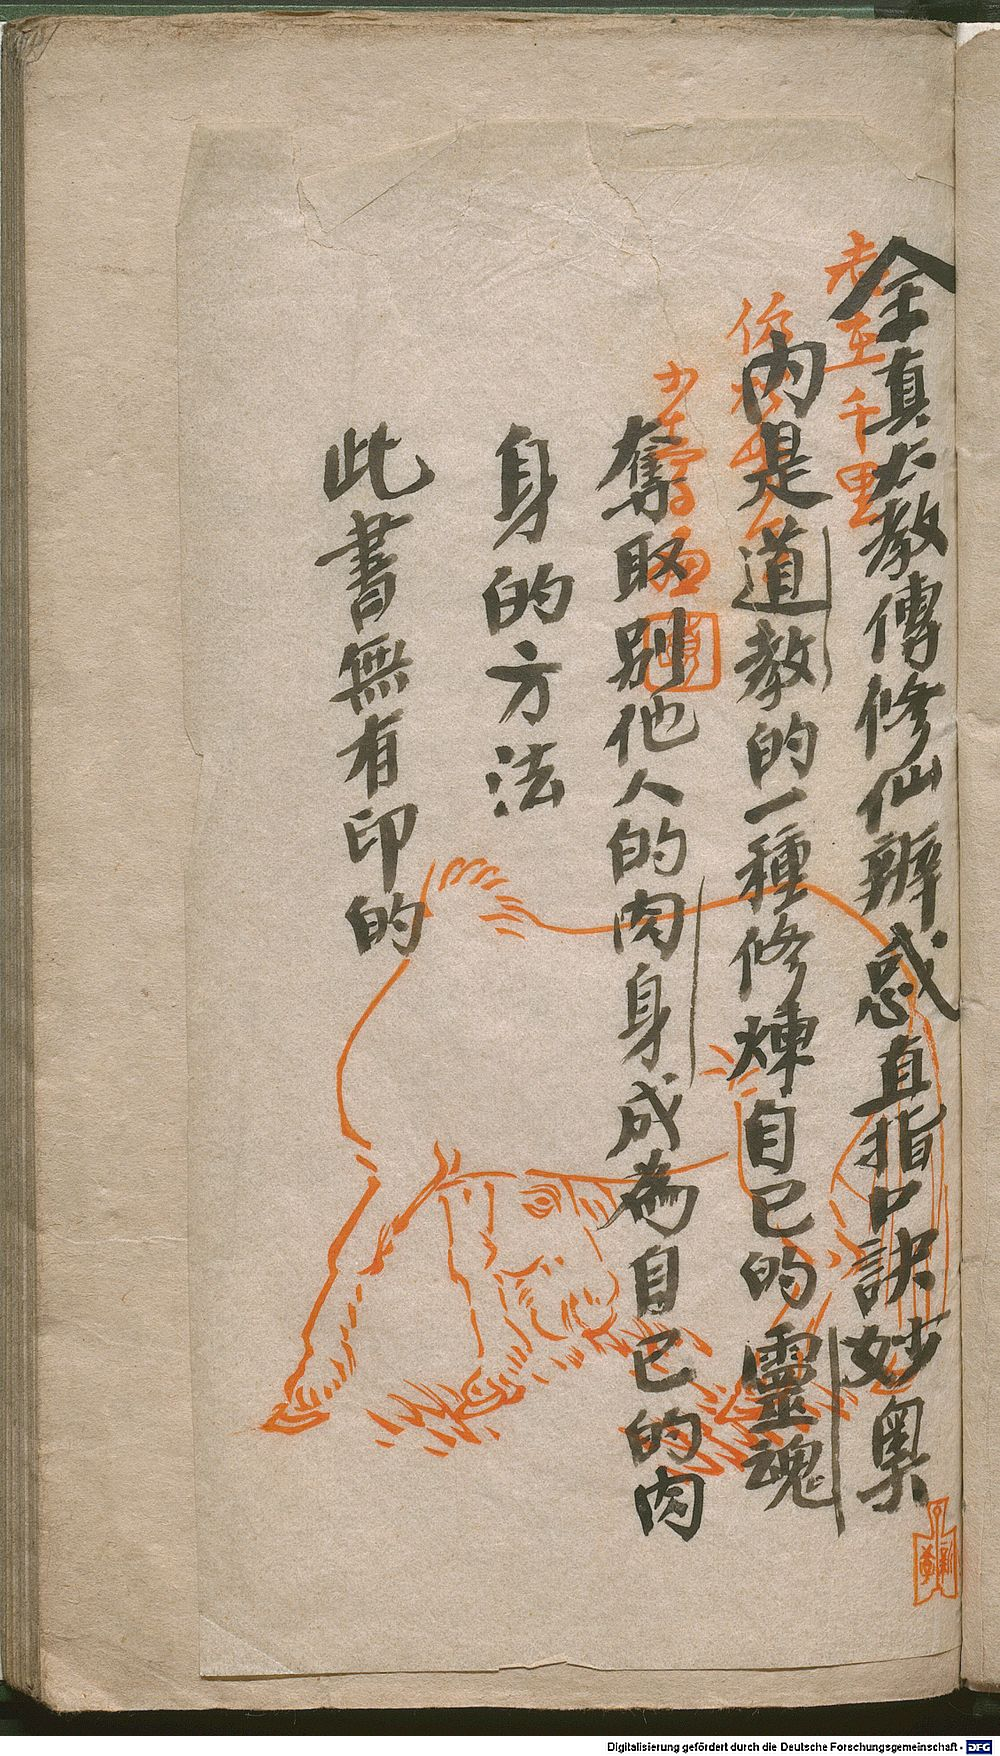 全真大教傳修仙辨惑直指口訣妙奥
內是道教的一種修煉自已的靈魂
奪取別他人的肉身成為自已的肉
身的方法
此書無有印的
千里
Digitalisierung gefördert durch die Deutsche Forschungsgemeinschaft - DFG